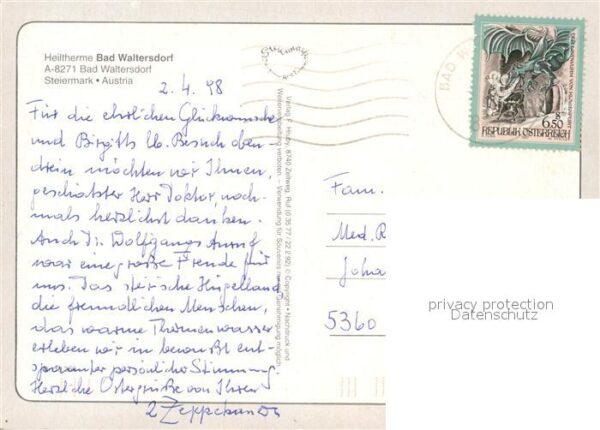 Heiltherme Bad Waltersdorf
A-8271 Bad Waltersdorf
Steiermark • Austria
2.4.98
Für die ehrlichen Glückwünsche
und Birgitts lb. Besuch oben-
drein möchten wir Ihnen,
geschätzter Herr Doktor, noch-
mals herzlichst danken.
Auch Dr. Wolfgangs Anruf
war eine große Freude für
uns. Das steirische Hügelland,
die freundlichen Menschen,
das warme Thermenwasser
erleben wir in bewußt ent-
spannter persönlicher Stimmung.
Herzliche Ostergrüße von Ihren
2
Verlag F. Hruby, 8740 Zeltweg, Ruf (0 35 77) 22 2 92) © Copyright • Nachdruck und
Weiterverarbeitung verboten - Verwendung für Souvenirs nur mit Genehmigung möglich
BAD W
6.50
REPUBLIK ÖSTERREICH
Fam.
Med. R
Joha
5360
privacy protection
Datenschutz